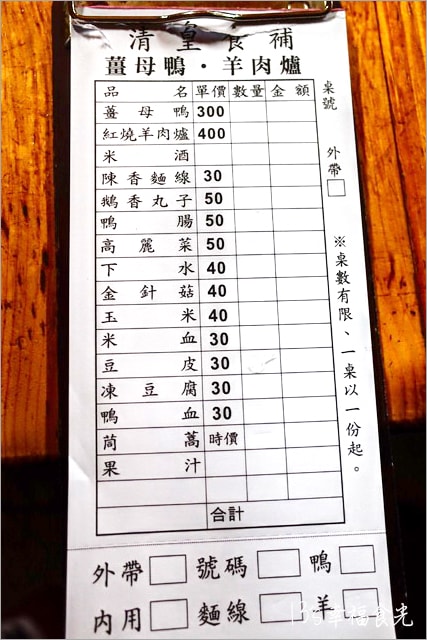 清皇食補
薑母鴨·羊肉爐
品名 單價 數量 金額
薑母鴨 300
紅燒羊肉爐 400
米酒
陳香麵線 30
鵝香丸子 50
鴨腸 50
高麗菜 50
下水 40
金針菇 40
玉米 40
米血 30
豆皮 30
凍豆腐 30
鴨血 30
茼萵 時價
果汁
合計
桌號
外帶
※桌數有限、一桌以一份起。
外帶 號碼 鴨
內用 麵線 羊
幸福食光